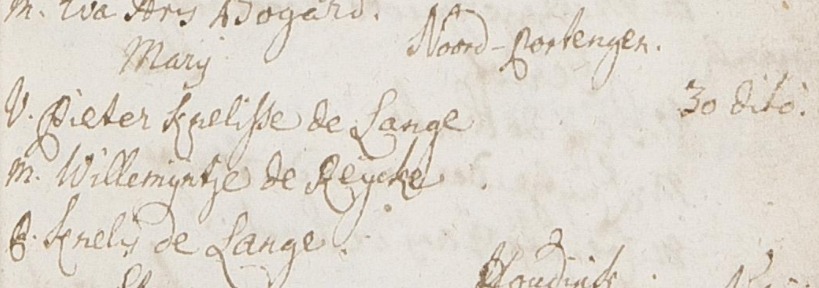 m. Eva Ars Bogard.
Marij Noord-Portengen.
V. Pieter Knelisse de Lange 30 dito.
m. Willemijntje de Reycke
P. Knelis de Lange.